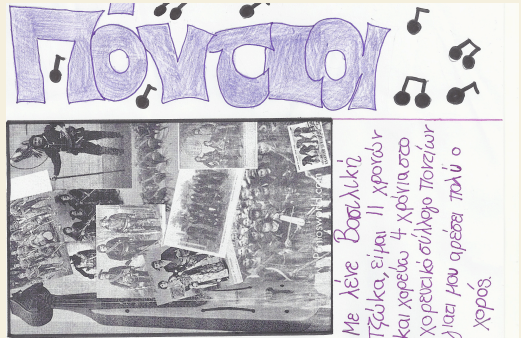 Πόντιοι
Με λένε Βασιλική
Τζώκα, είμαι 11 χρονών
και χορεύω 4 χρόνια στο
χορευτικό σύλλογο Ποντίων
γιατί μου αρέσει πολύ ο
χορός.